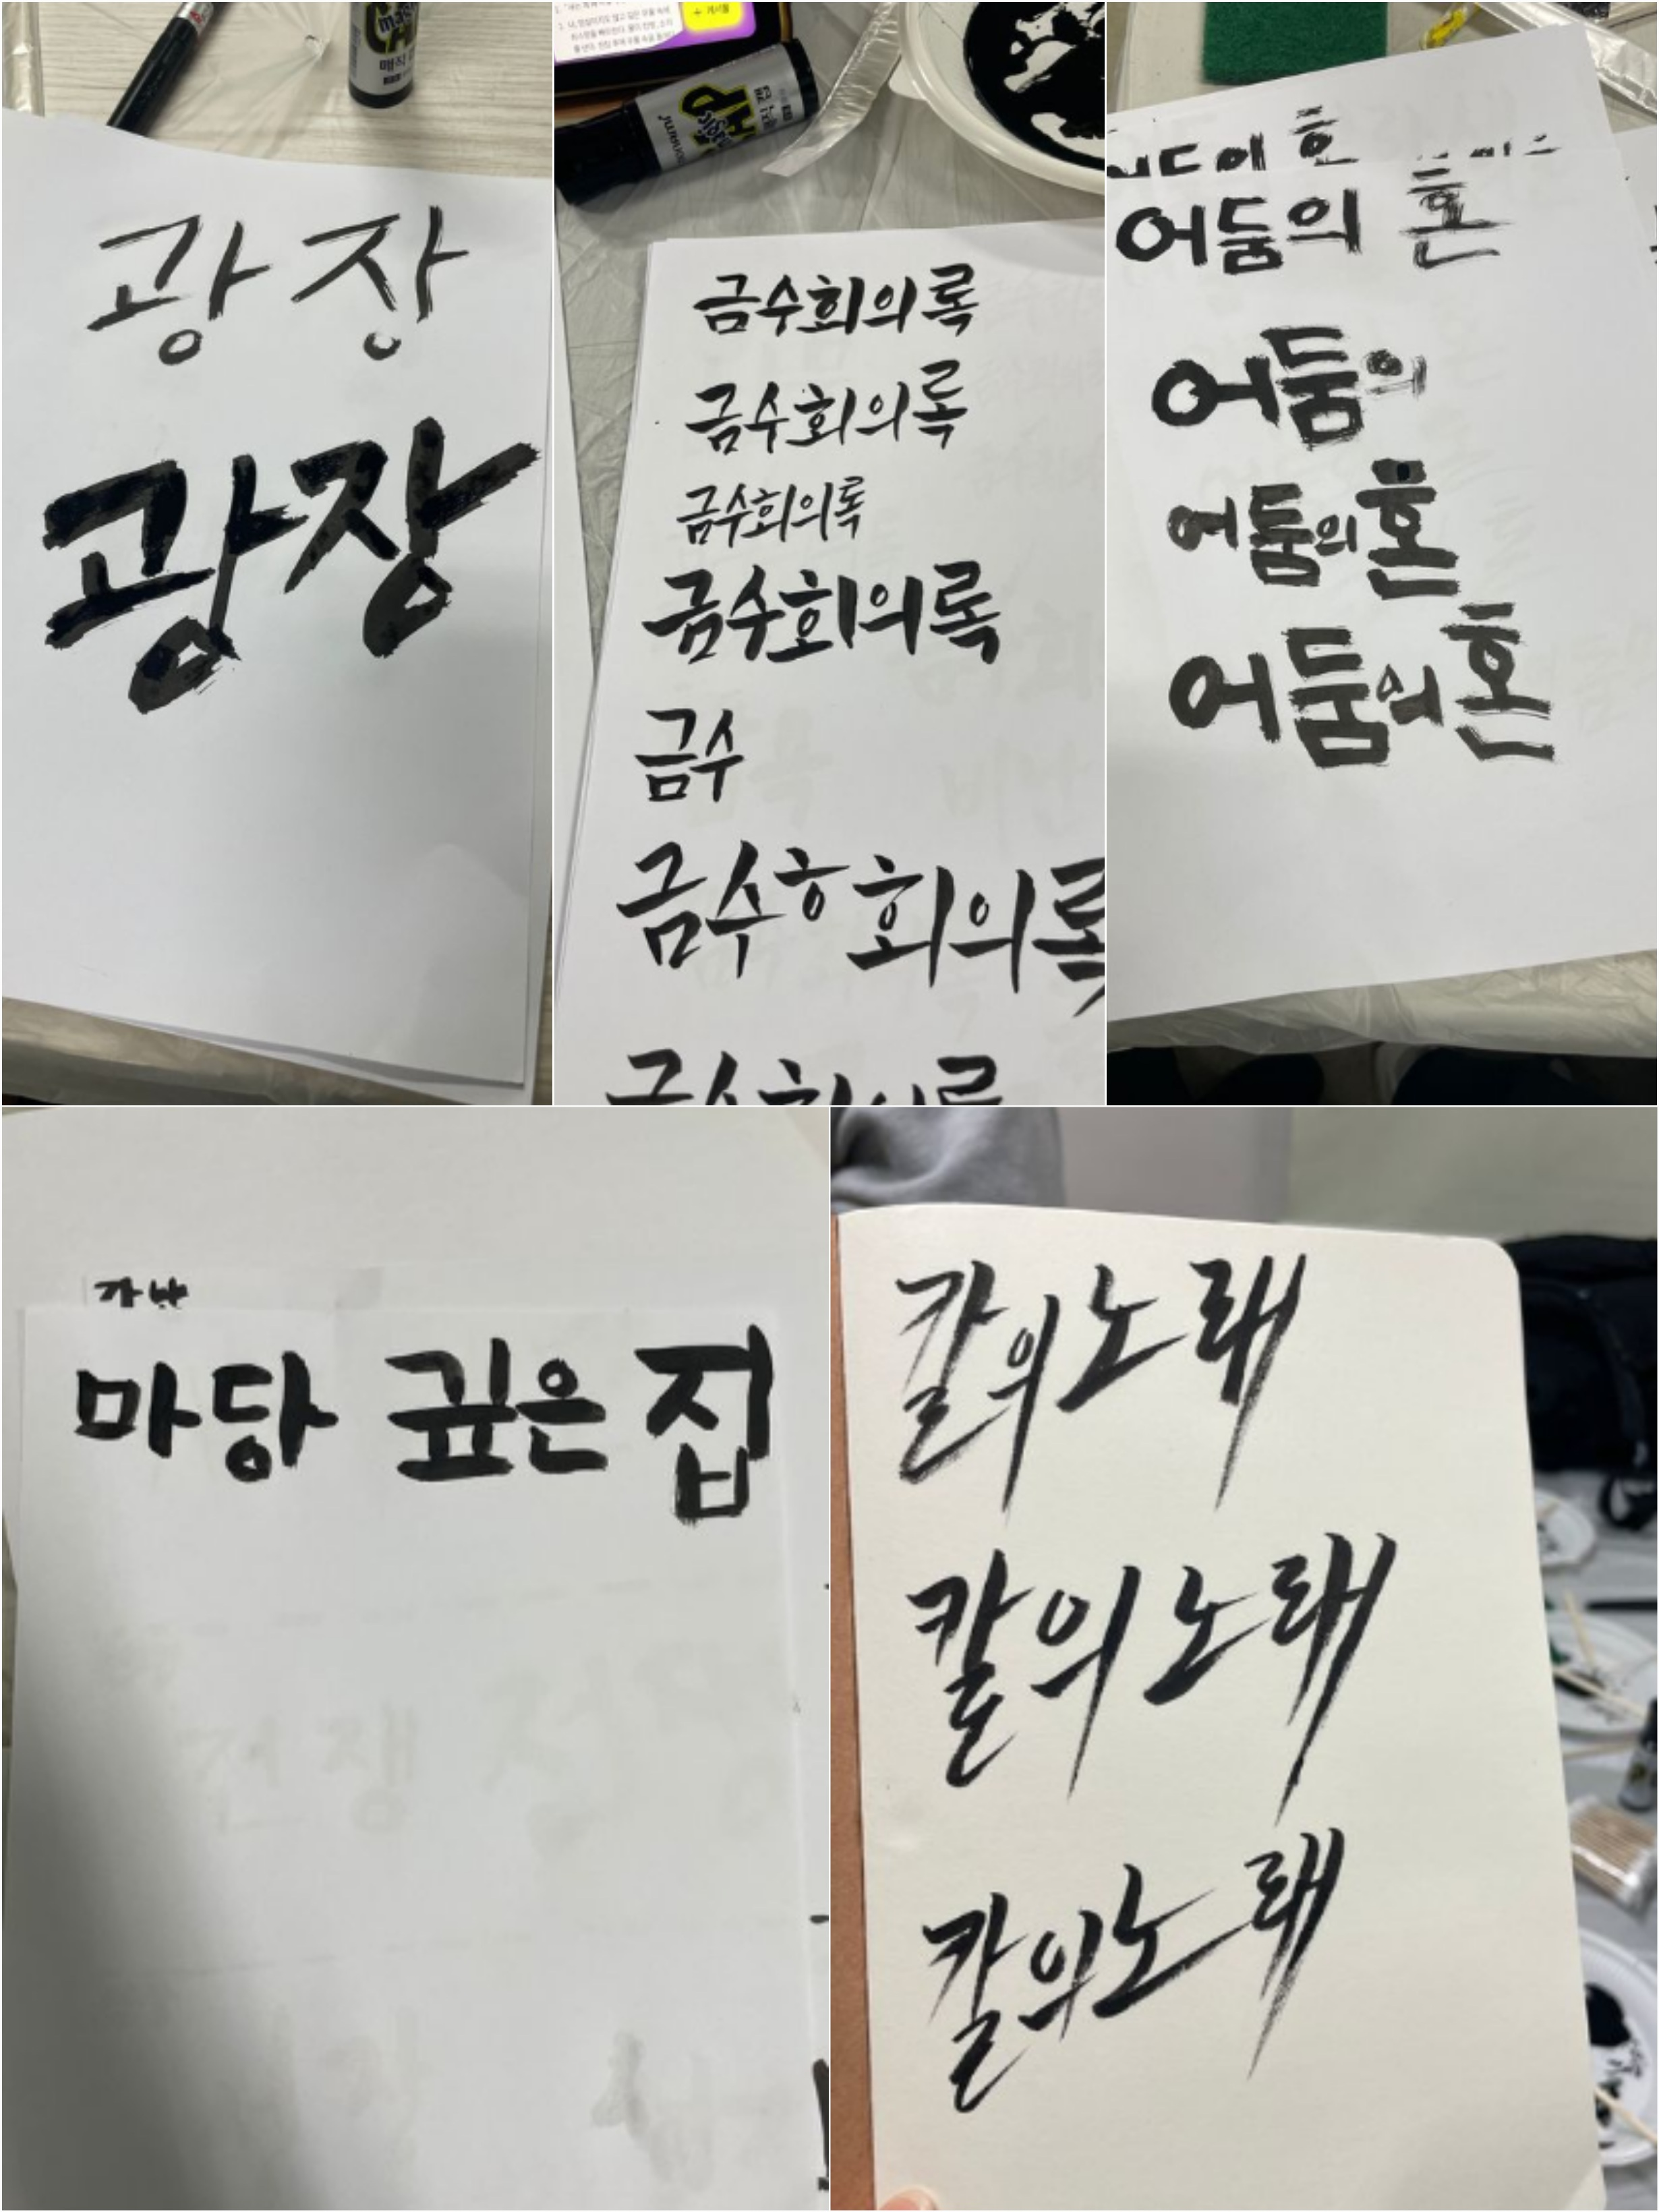 광장
광장
금수회의록
금수회의록
금수회의록
금수회의록
금수
금수ㅎ회의록
금수회의록
어둠의 혼
어둠의
어둠의혼
어둠의혼
마당 깊은 집
칼의노래
칼의노래
칼의노래